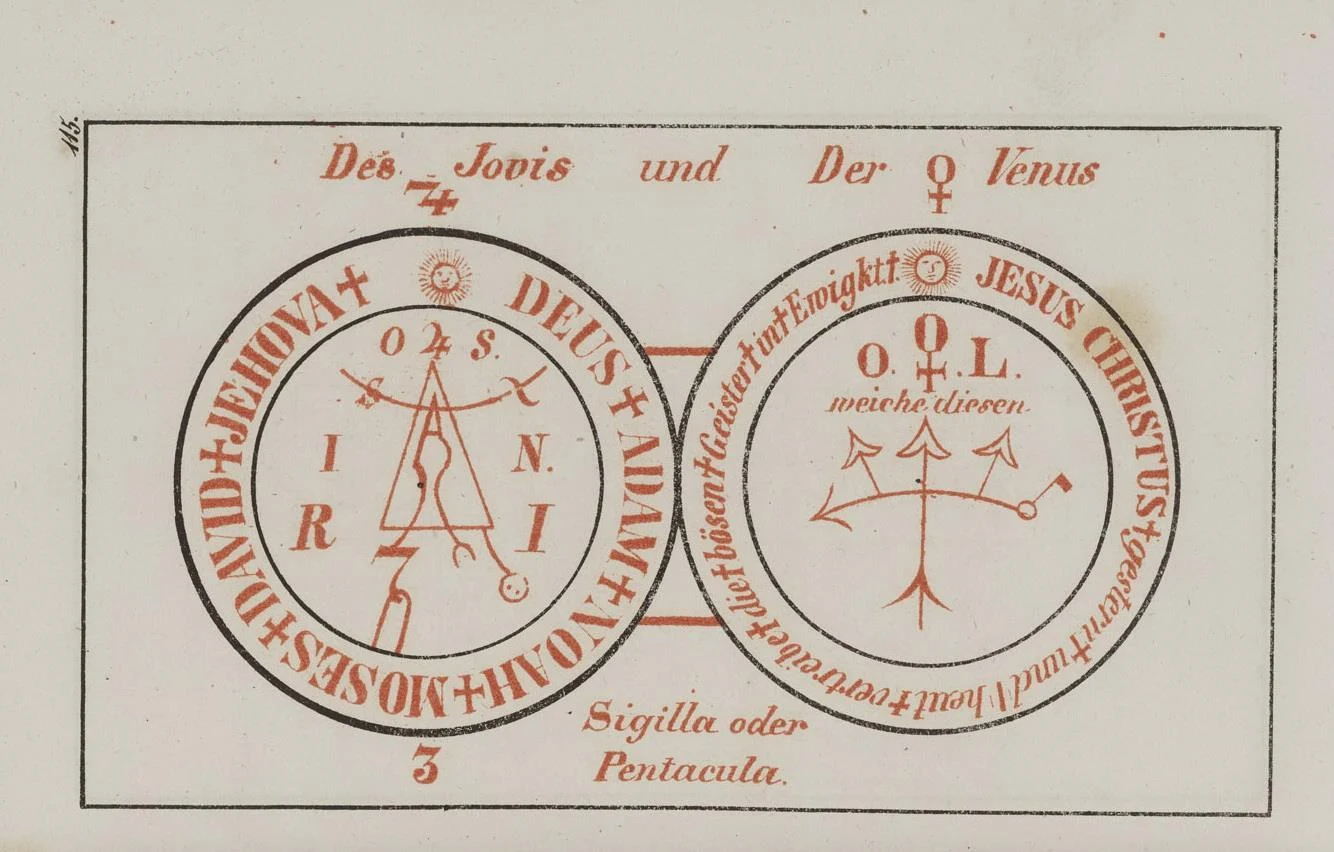 115.
Des ♃ Jovis und Der ♀ Venus
DEUS ✝ ADAM ✝ NOAH ✝ MOSES ✝ DAVID ✝ JEHOVA ✝
O ♃ S.
A
I N.
R I
7
3
JESUS CHRISTUS ✝ gestern ✝ und ✝ heut ✝ vertreibet ✝ die ✝ bösen ✝ Geister ✝ in ✝ Ewigkt. ✝
O. ♀. L.
weiche diesen
Sigilla oder
Pentacula.